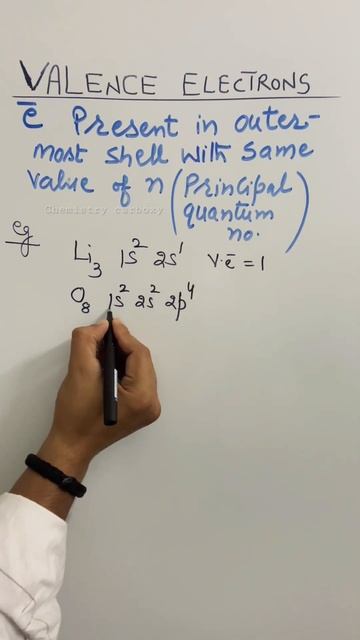 VALENCE ELECTRONS
ē Present in outer-
most shell with same
value of n (Principal
quantum
no.)
Chemistry carboxy
eg
Li₃ 1s² 2s¹ v.ē = 1
O₈ 1s² 2s² 2p⁴